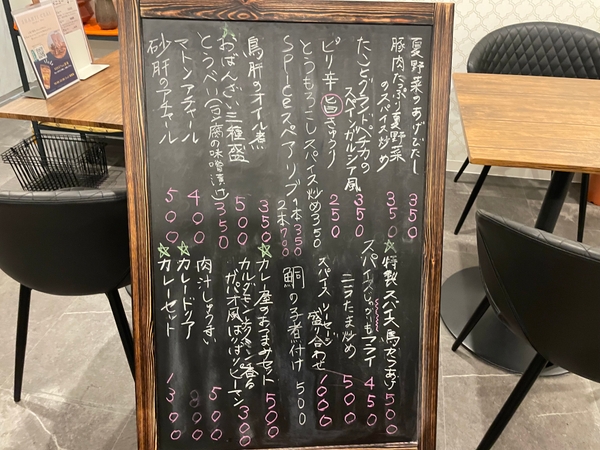 夏野菜のあげびたし 350
豚肉たっぷり夏野菜
のスパイス炒め 350
たことフライドポテトの
スペインガルシア風 350
ピリ辛旨きゅうり 250
とうもろこしスパイス炒め 350
Spiceスペアリブ 1本 350
2本 700
鳥肝のオイル煮 350
おばんざい三種盛 500
とうべい(豆腐の味噌漬) 350
マトンアチャール 400
砂肝のアチャール 500
☆特製スパイス鳥からあげ 500
スパイスじゃがいもフライ 450
ニラたま炒め 500
スパイスソーセージ
盛り合わせ 1000
鯛の子煮付け 500
☆カレー屋のおつまみセット 500
カルダモンとレモン香る
ガパオ風ぱりぱりピーマン 300
肉汁しゅうまい 500
☆カレードリア 800
☆カレーセット 1300